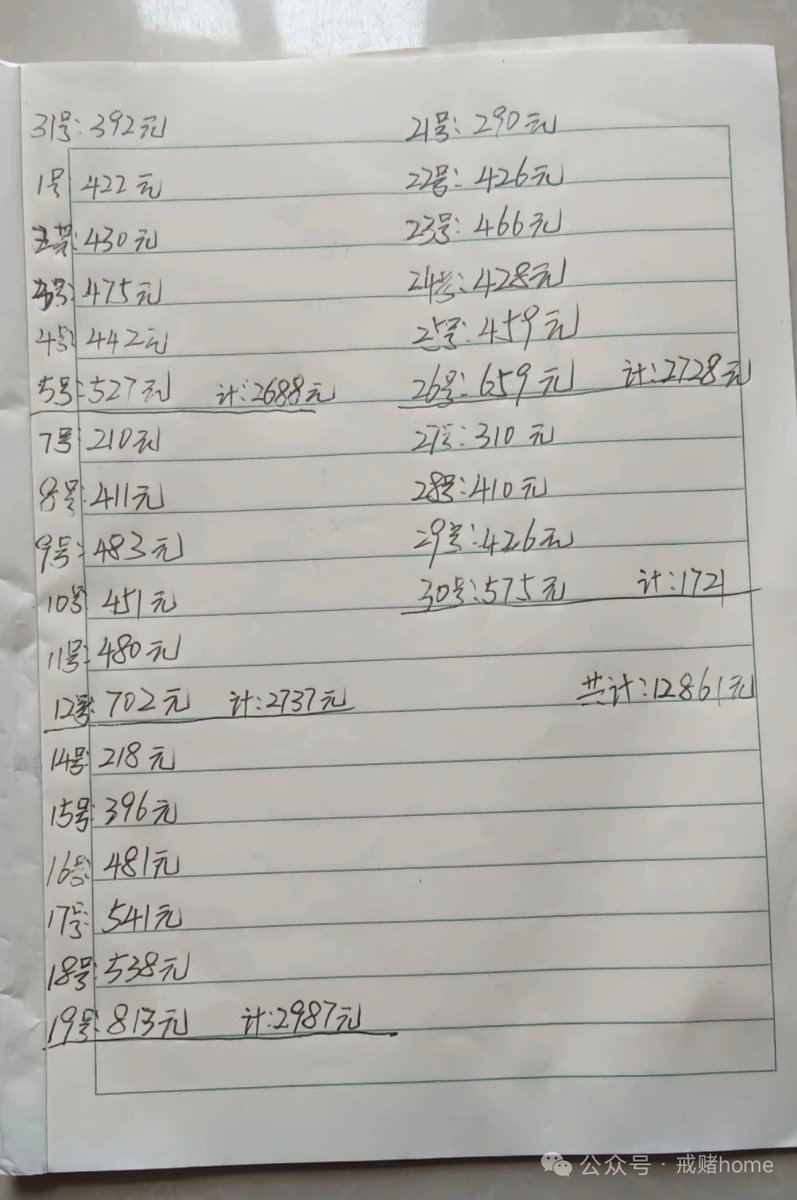 31号:392元
1号:422元
2号:430元
3号:475元
4号:442元
5号:527元 计:2688元
7号:210元
8号:411元
9号:483元
10号:451元
11号:480元
12号:702元 计:2737元
14号:218元
15号:396元
16号:481元
17号:541元
18号:538元
19号:813元 计:2987元
21号:290元
22号:426元
23号:466元
24号:428元
25号:459元
26号:659元 计:2728元
27号:310元
28号:410元
29号:426元
30号:575元 计:1721
共计:12861元
公众号·戒赌home